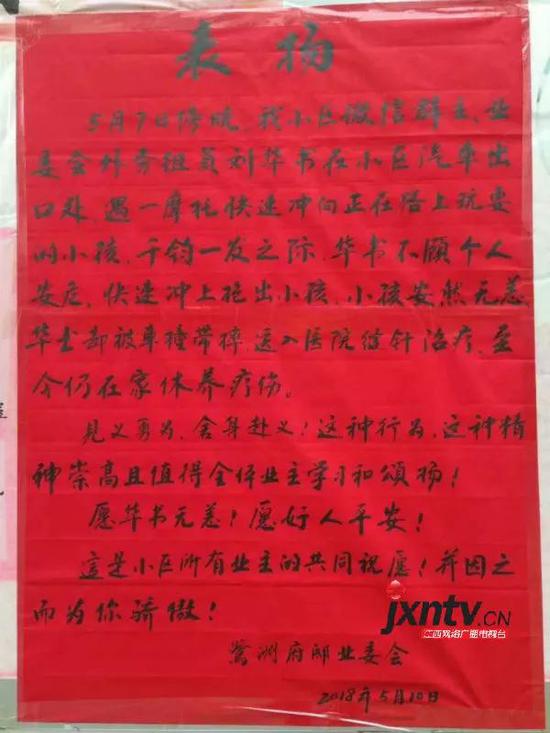 表扬
5月7日傍晚，我小区微信群主、业
委会外务组员刘华书在小区汽车出
口处，遇一摩托快速冲向正在路上玩耍
的小孩，千钧一发之际，华书不顾个人
安危，快速冲上抱出小孩，小孩安然无恙，
华书却被车撞带摔，送入医院缝针治疗，至
今仍在家休养疗伤。
見义勇为，舍身赴义！这种行为，这种精
神崇高且值得全体业主学习和頌扬！
愿华书无恙！愿好人平安！
這是小区所有业主的共同祝愿！并因之
而为你骄傲！
鹭洲府邸业委会
2018年5月10日
jxntv.CN
江西网络广播电视台